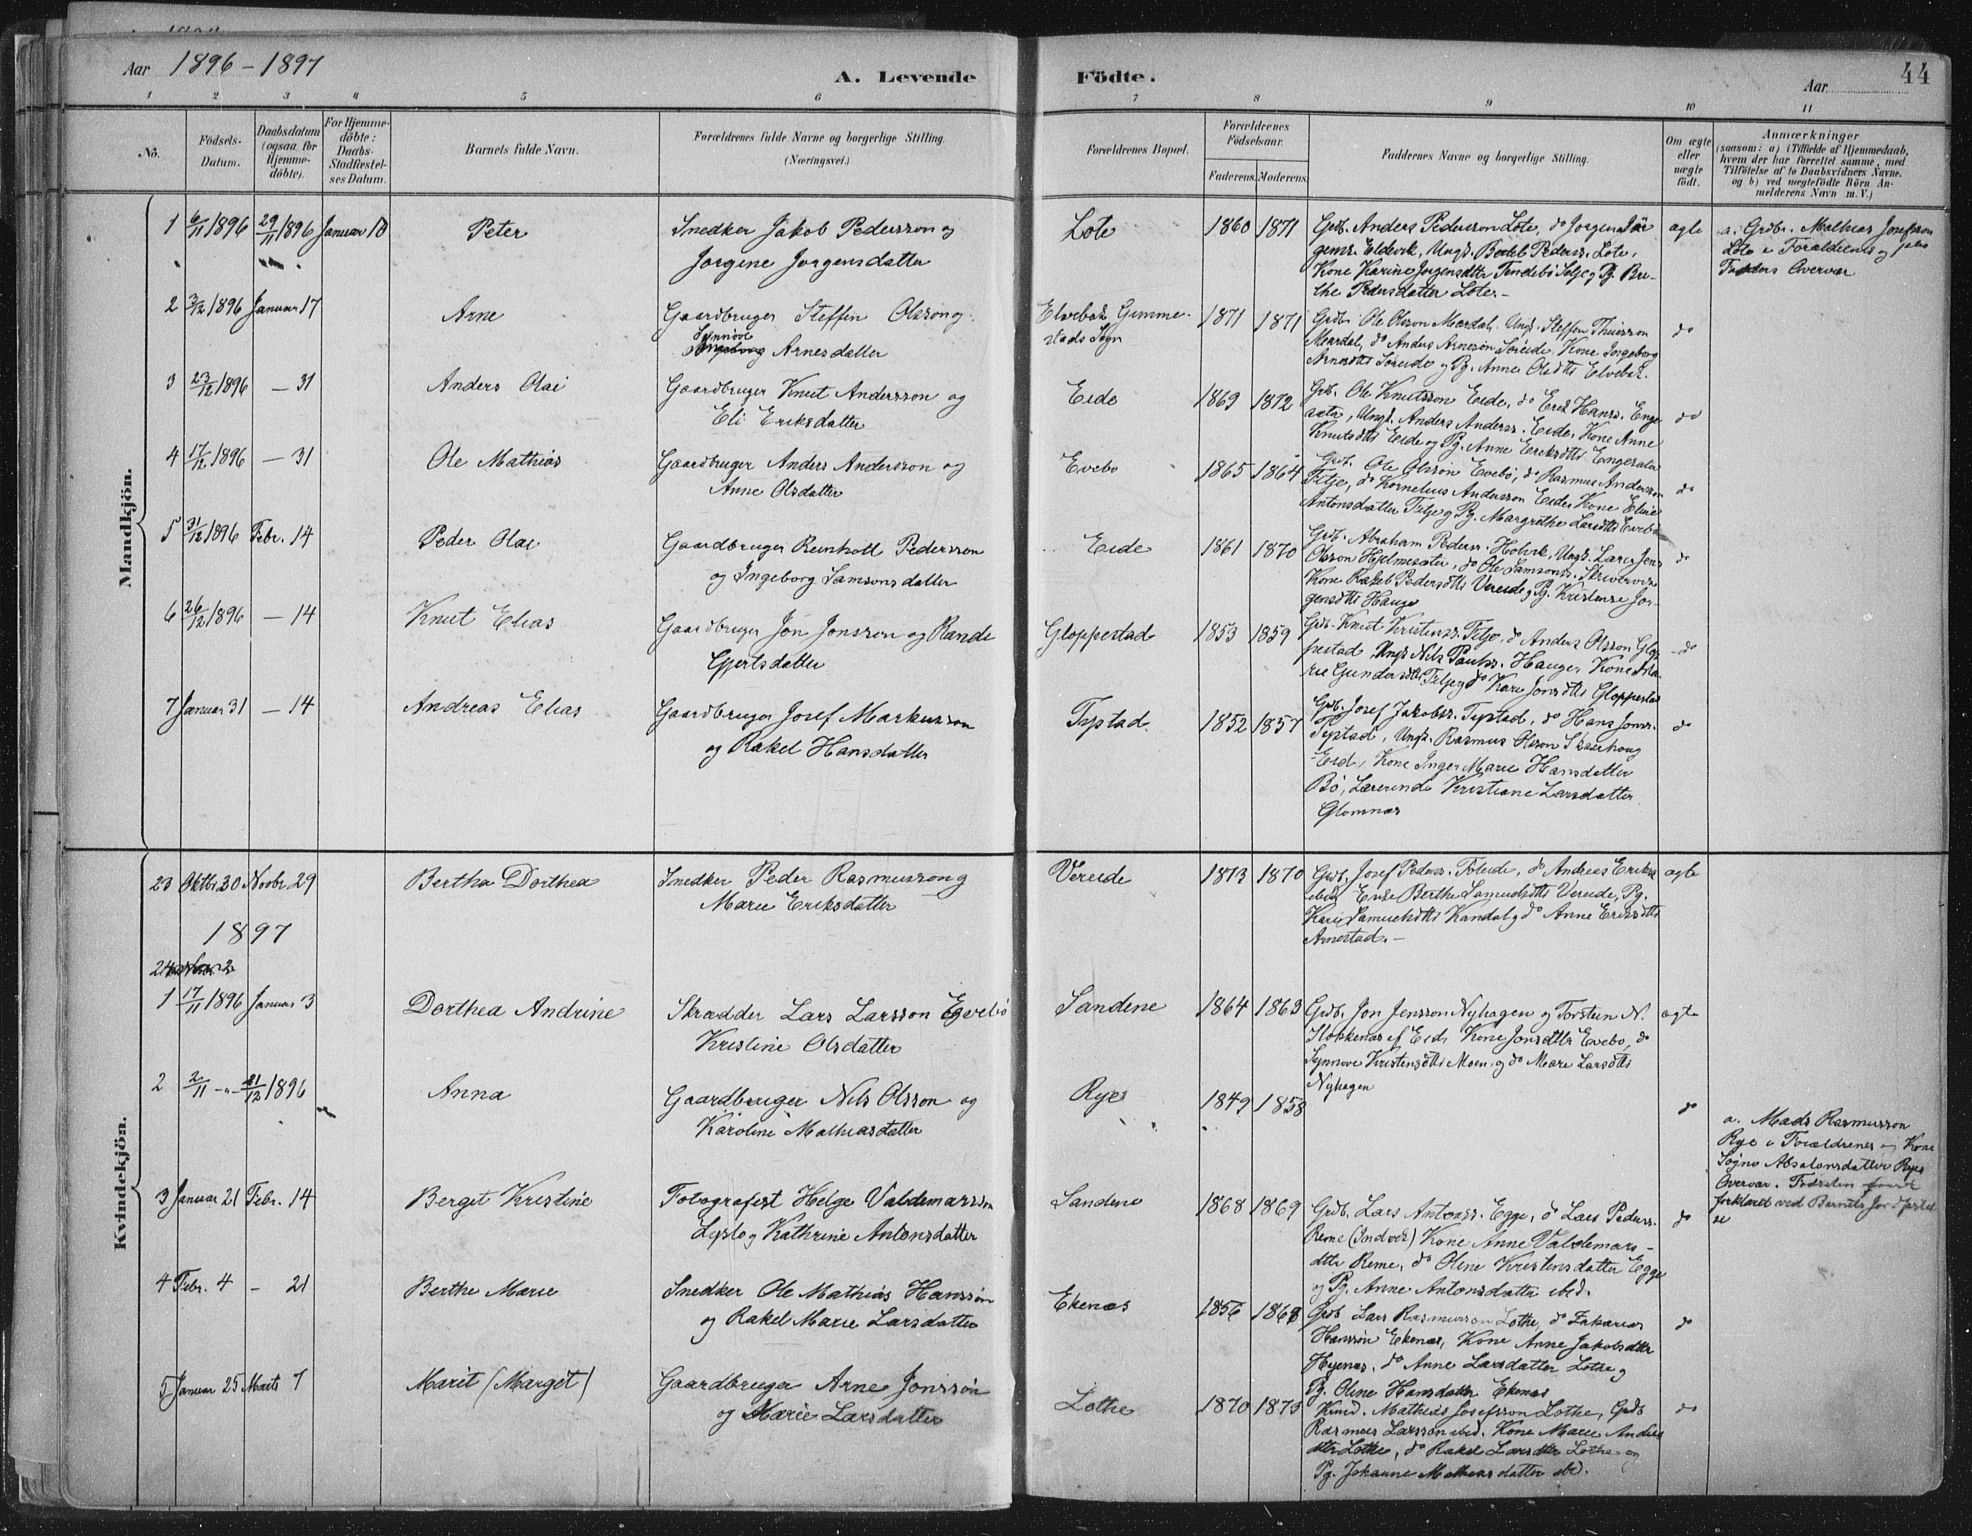 Aar 1896-1897
A. Levende Födte.
Aar 44
1 2 3 4 5 6 7 8 9 10 11
No.
Födsels-
Datum.
Daabsdatum
(ogsaa for
Hjemme-
döbte).
For Hjemme-
döbte:
Daabs-
Stadfæstel-
ses Datum.
Barnets fulde Navn.
Forældrenes fulde Navne og borgerlige Stilling.
(Næringsvei.)
Forældrenes Bopæl.
Forældrenes
Födselsaar.
Faderens. Moderens.
Faddernes Navne og borgerlige Stilling.
Om ægte
eller
uægte
födt.
Anmærkninger
(saasom: a) i Tilfælde af Hjemmedaab,
hvem der har forrettet samme, med
Tilföielse af to Daabsvidners Navne.
og b) ved uægtefödte Börn An-
melderens Navn m. V.)
Mandkjön.
1 6/11 1896 29/11 1896 Januar 10 Peter
Snedker Jakob Pedersson og
Jorgine Jorgensdatter
Lote 1860 1871
Grdb. Anders Pedersson Lote, do Jorgen Jör
gens. Eldevik, Ungk. Bertel Peders. Lote,
Kone Karine Jorgensdtter Tendebö Selje og Pg. Ber-
the Pedersdatter Lote.-
ægte
a. Grdbr. Mathias Josefson
Lote i Forældrenes og
Fadders Overvær
2 3/12 1896 Januar 17 Arne
Gaardbruger Steffen Olsson og
Synnöve
Arnesdatter
Elvebak Gimme-
stads Sogn 1871 1871
Grdb. Ole Olsson Mardal, Ungk. Steffen
Mardal, do Anders Arnesön Söreide, Kone Ingeborg
Arnesdtt Söreide og Pg. Anne Olsdtt Elvebak.
do
3 23/12 1896 - 31 Anders Olai
Gaardbruger Knut Andersson og
Eli Eriksdatter
Eide 1869 1872
Grdb. Ole Knutsson Eide, do Erik Hans. Enge
sæter, Ungk. Anders Anders. Eide, Kone Anne
Knutsdtt Eide og Pg. Anne Eriksdtt Engesæter
do
4 17/12 1896 - 31 Ole Mathias
Gaardbruger Anders Andersson og
Anne Olsdatter
Evebö 1865 1864
Grdb. Ole Olsson Evebö, do Rasmus Andersson
Telje, do Kornelius Andersson Eide, Kone
Antonsdatter Telje og Pg. Margrethe Larsdtt Evebö
do
5 31/12 1896 Febr. 14 Peder Olai
Gaardbruger Reinholt Pedersson
og Ingeborg Samsonsdatter
Eide 1861 1870
Grdb. Abraham Peders. Holvik, Ungk. Lars Jens
Olsson Hjelmesæter, do Ole Samsons.
Kone Rakel Pedersdtt Vereide og Pg. Kristense Jor-
gensdtt Hauge
do
6 26/12 1896 - 14 Knut Elias
Gaardbruger Jon Jonsson og Rande
Gjertsdatter
Gloppestad 1853 1859
Grdb. Knut Kristens. Telje, do Anders Olsson Glop
pestad, Ungk. Nils Pauls. Hauge, Kone Ma
rie Gundersdtt Telje og do Kari Jonsdtt Gloppestad
do
7 Januar 31 - 14 Andreas Elias
Gaardbruger Josef Markusson
og Rakel Hansdatter
Tystad 1852 1857
Grdb. Josef Jakobs. Tystad, do Hans Jons.
Tystad, Ungk. Rasmus Olsson Skaarhaug
Eid, Kone Inger Marie Hansdatter
Bö, Lærerinde Kristiane Larsdatter
Glomnæs
do
Kvindekjön.
23 Oktbr. 30 Novbr. 29 Bertha Dorthea
Snedker Peder Rasmusson og
Marie Eriksdatter
Vereide 1873 1870
Grdb. Josef Peders. Föleide, do Andreas Eriks
ibid Enke Berthe Samuelsdtt Vereide, Pg.
Kari Samuelsdtt Kandal og do Anne Eriksdtt
Arnestad.-
ægte
1897
24
1 17/11 1896 Januar 3 Dorthea Andrine
Skrædder Lars Larsson Evebö
Kristine Olsdatter
Sandene 1864 1863
Grdb. Jon Jensson Nyhagen og Torstein N.
Stokkenæs af Eid, Kone Jonsdtt Evebö, do
Synnöve Kristensdtt Moen og do Mari Larsdtt
Nyhagen
ægte
2 2/11 -"- 21/12 1896 Anna
Gaardbruger Nils Olsson og
Karoline Mathiasdatter
Rye 1849 1858
do
a. Mads Rasmusson
Rye i Forældrenes og Kone
Sögne Absalonsdatter Ryes
Overvær. Födselen
forklaret ved Barnets Jordfæstel
se
3 Januar 21 Febr. 14 Bergit Kristine
Fotografist Helge Valdemarsson
Lyslo og Kathrine Antonsdatter
Sandene 1868 1869
Grdb. Lars Antons. Egge, do Lars Peders.
Reme (Indvik) Kone Anne Valdemars-
dtter Reme, do Oline Kristensdatter Egge
og Pg. Anne Antonsdatter ibid.
do
4 Febr. 4 - 21 Berthe Marie
Snedker Ole Mathias Hanssön
og Rakel Marie Larsdatter
Ekenæs 1856 1868
Grdb. Lars Rasmusson Lothe, do Zakarias
Hanssön Ekenæs, Kone Anne Jakobsdtter
Hyenæs, do Anne Larsdatter Lothe og
Pg. Oline Hansdatter Ekenæs
do
5 Januar 25 Marts 7 Marit (Margit)
Gaardbruger Arne Jonssön
og Marie Larsdatter
Lothe 1870 1873
Kaud. Mathias Josefsson Lothe, Grdb
Rasmus Larsson ibid. Kone Marie Anders
dtter Lothe, do Rakel Larsdtter Lothe og
Pg. Johanne Mathiasdatter ibid.
do